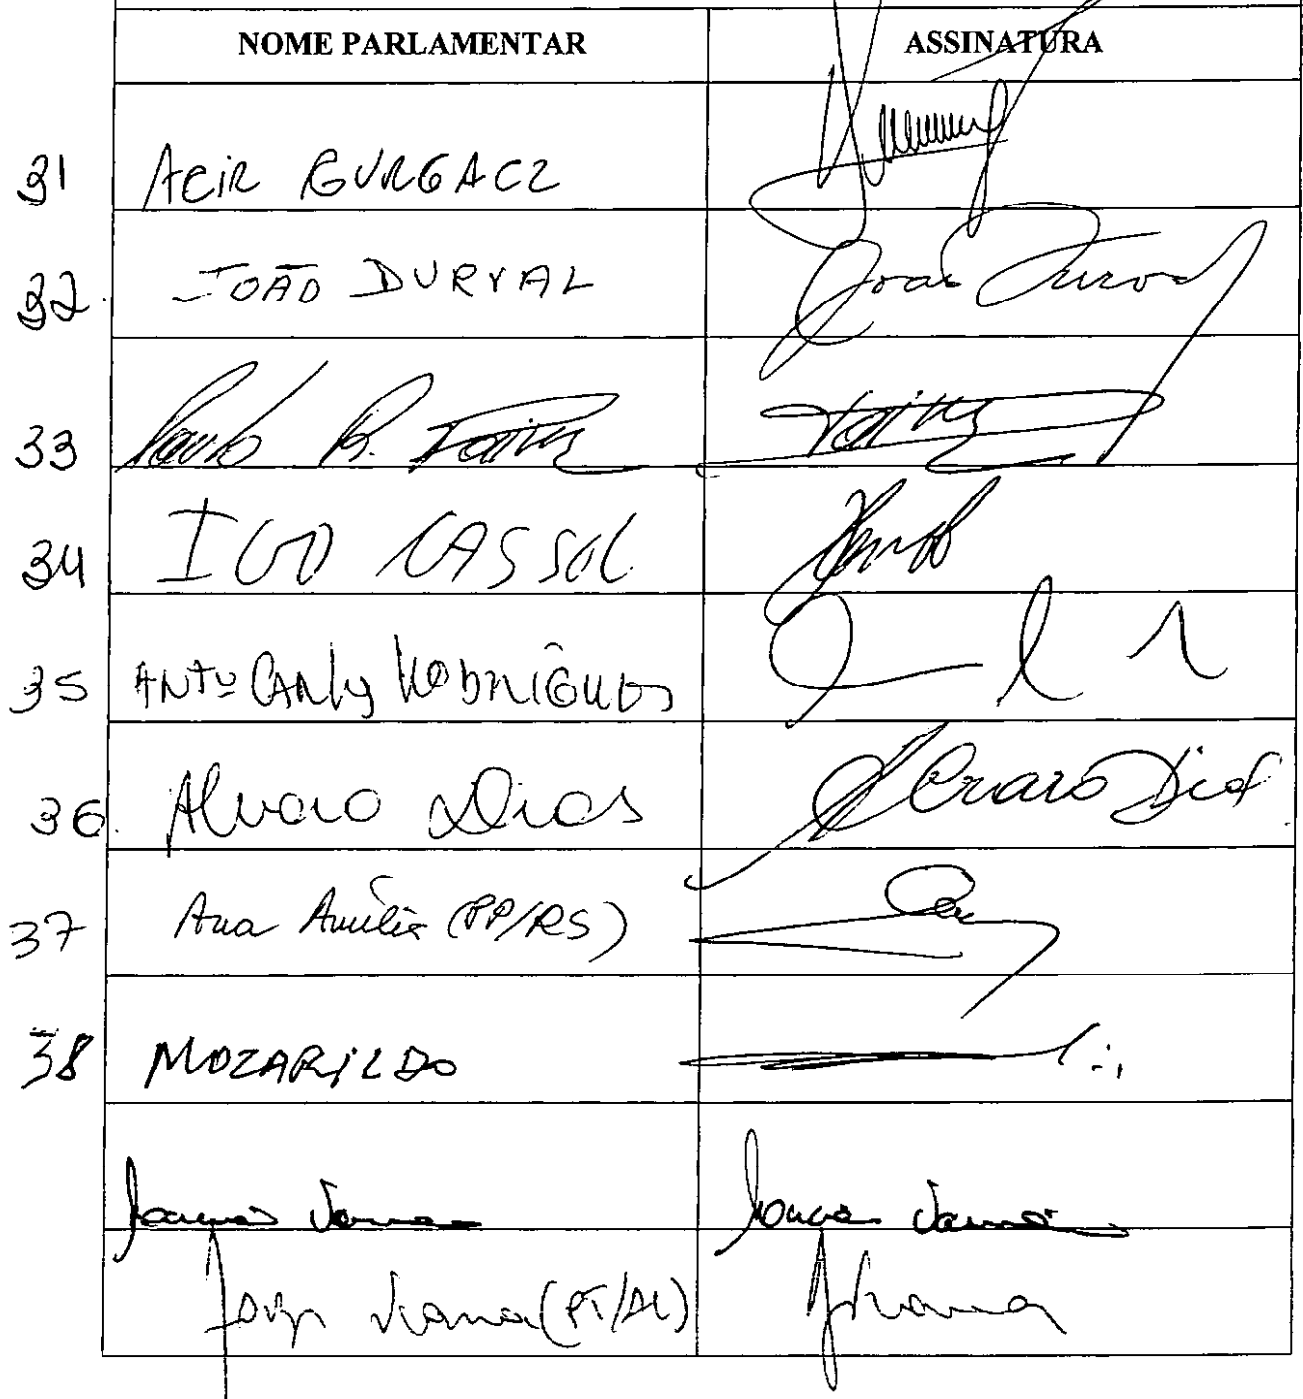 NOME PARLAMENTAR ASSINATURA
31 ACIR GURGACZ
32 JOÃO DURVAL João Durval
33 Paulo R. Paim Paim
34 IVO CASSOL
35 ANTº CARLOS RODRIGUES
36. Alvaro Dias Alvaro Dias
37 Ana Amélia (PP/RS)
38 MOZARILDO
Jorge Viana (PT/AC) JViana